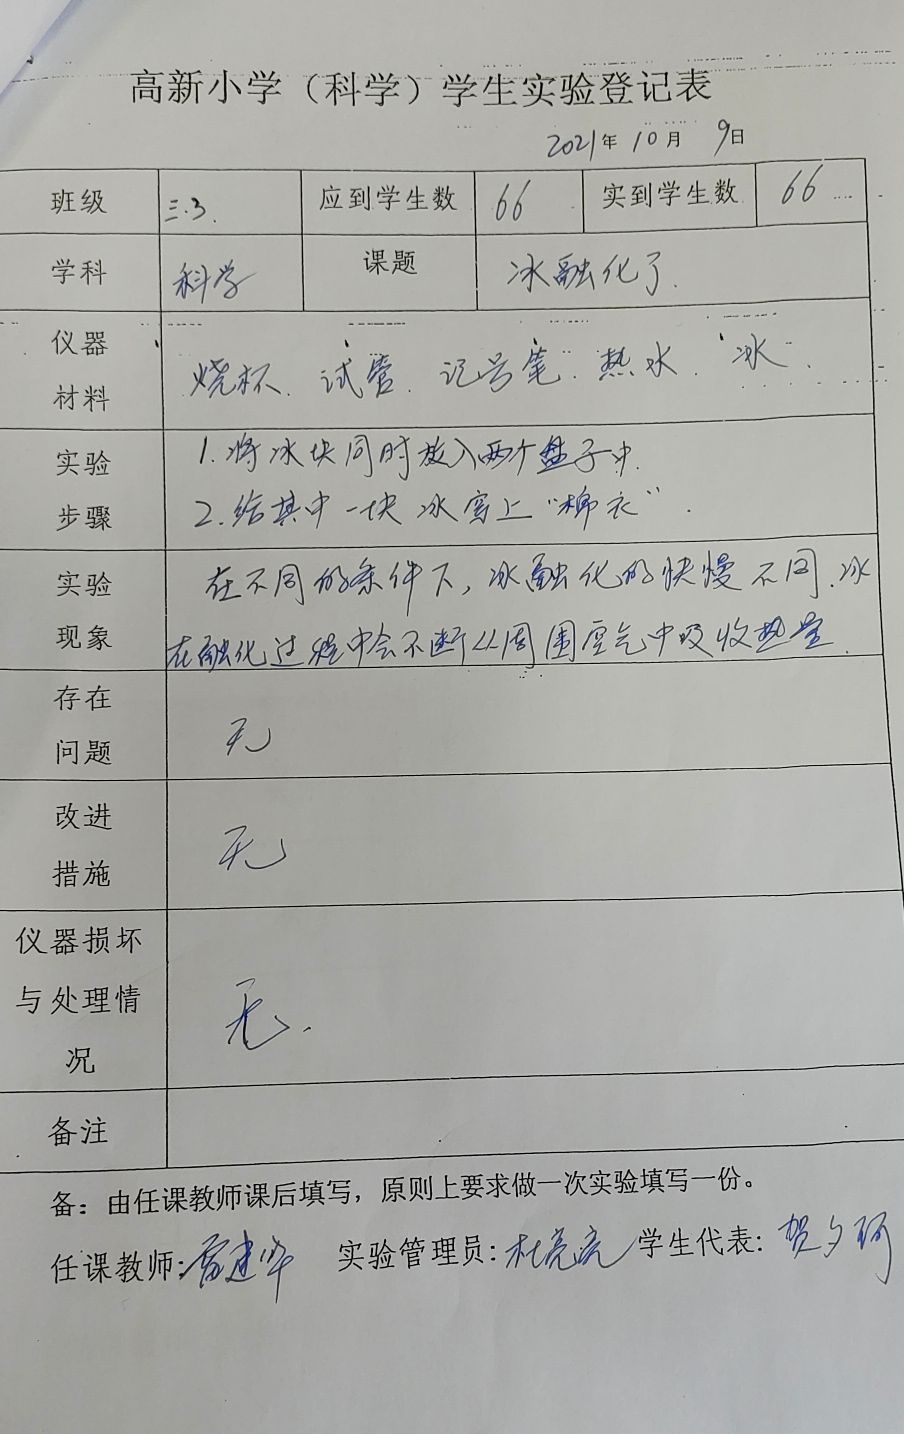 高新小学（科学）学生实验登记表
2021年10月 9日
班级 三.3. 应到学生数 66 实到学生数 66
学科 科学 课题 冰融化了.
仪器
材料
烧杯. 试管. 记号笔. 热水. 冰.
实验
步骤
1.将冰块同时放入两个盘子中.
2.给其中一块冰穿上“棉衣”.
实验
现象
在不同的条件下,冰融化的快慢不同.冰
在融化过程中会不断从周围空气中吸收热量.
存在
问题
无
改进
措施
无
仪器损坏
与处理情
况
无.
备注
备：由任课教师课后填写，原则上要求做一次实验填写一份。
任课教师:雷建华 实验管理员:杜亮亮 学生代表:贺夕珂